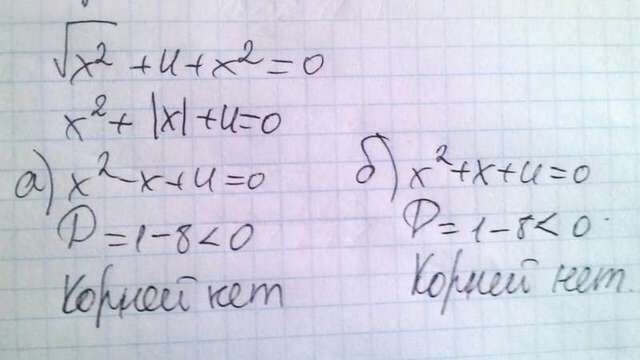 √x² + 4 + x² = 0
x² + |x| + 4 = 0
а) x² - x + 4 = 0
D = 1 - 8 < 0
Корней нет
б) x² + x + 4 = 0
D = 1 - 8 < 0
Корней нет.